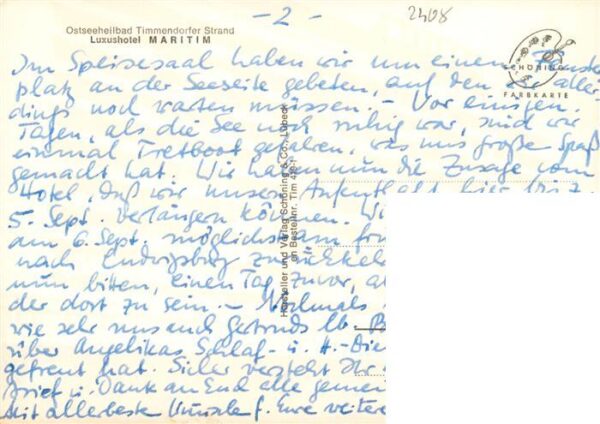 - 2 -
2408
Ostseeheilbad Timmendorfer Strand
Luxushotel MARITIM
SCHÖNING
FARBKARTE
Im Speisesaal haben wir um einen Fenster
platz an der Seeseite gebeten, auf den wir aller
dings noch warten müssen. - Vor einigen
Tagen, als die See noch ruhig war, sind wir
einmal Tretboot gefahren, was uns große Spaß
gemacht hat. Wir haben nun die Zusage vom
Hotel, daß wir unseren Aufenthalt hier bis z.
5. Sept. verlängern können. Wi
am 6. Sept. möglichst am
nach Ludwigsburg
nun bitten, einen Tag zuvor, a
der dort zu sein. - Nochmals
wie sehr uns auch Gertruds lb. B
über Angelikas Schlaf- u.
gefreut hat. Sicher versteht Ihr
Brief u. Dank an Euch alle gemei
Mit allerbeste Wünsche f. Eure weitere
Hersteller und Verlag Schöning & Co., Lübeck
Bestellnr. Tim